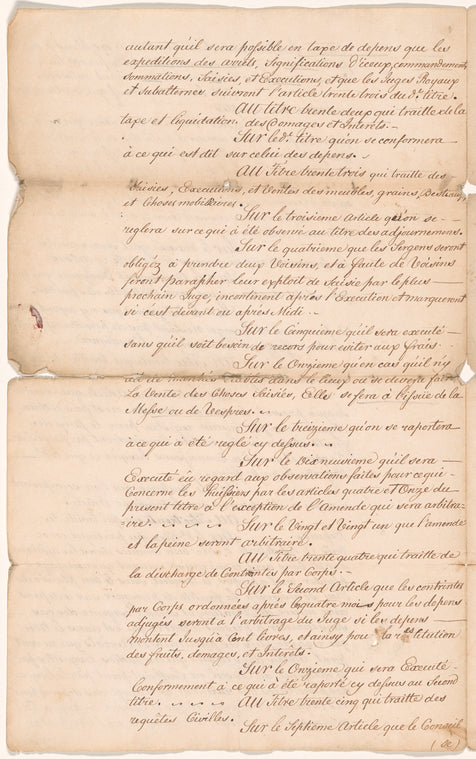 autant qu'il sera possible en taxe de depens que les
expeditions des arrets, significations d'iceux, commandements,
sommations, Saisies, et Executions, et que les Juges Royaux
et Subalternes suivront l'article trente trois du d.t titre.
AU titre trente deux qui traitte de la
taxe et liquidation des Domages et Interêts.
Sur le d.t titre qu'on se conformera
à ce qui est dit sur celui des depens.
AU Titre trente trois qui traitte des
Saisies, Executions, et Ventes des meubles, grains, Bestiaux,
et Choses mobiliaires.
Sur le troisieme Article qu'on se
reglera sur ce qui à été observé au titre des adjournemens.
Sur le quatrieme que les Sergens seront
obligéz à prendre deux Voisins, et à faute de Voisins
feront Parapher leur exploit de Saisie par le plus
prochain Juge, incontinent aprés l'Execution et marqueront
si c'est devant ou aprés Midi
Sur le Cinquieme qu'il sera executé
sans qu'il soit besoin de recors pour éviter aux frais.
Sur le Onzieme qu'en cas qu'il n'y
dans le lieux ou se devroit faire
La Vente des Choses Saisies, Elle se fera à l'issüe de la
Messe ou de Vespres.
Sur le treizieme qu'on se raportera
à ce qui à été reglé cy dessus.
Sur le Dixneusieme qu'il sera
Executé eu regard aux observations faites pour ce qui
Concerne les huissiers par les articles quatre et Onze du
present titre à l'exception de l'Amende qui sera arbitra-
ire.
Sur le Vingt et Vingt un que l'amende
et la peine seront arbitraire.
AU Titre trente quatre qui traitte de
la discharge de Contraintes par Corps.
Sur le Second Article que les contraintes
par Corps ordonnées aprés les quatre mois pour les depens
adjugés seront à l'arbitrage du Juge si les depens
montent Jusqu'à Cent livres, et ainsy pour la restitution
des fruits, domages, et Interêts.
Sur le Onzieme qui sera Executé
Conformement à ce qui à été raporté cy dessus au Second
titre.
AU Titre trente cinq qui traitte des
requêtes Civilles.
Sur le Septième Article que le Conseil